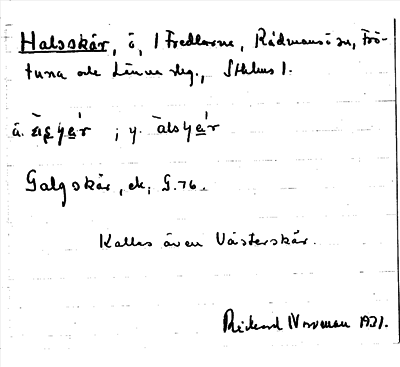 Halsskär, ö, i Fredlarne, Rådmansö sn, Frö-
tuna och Länna skg., Sthlms l.
ä. ; y.
Galgskär, ek, G. 76.
Kallas även Västerskär.
Rickard Norrman 1931.